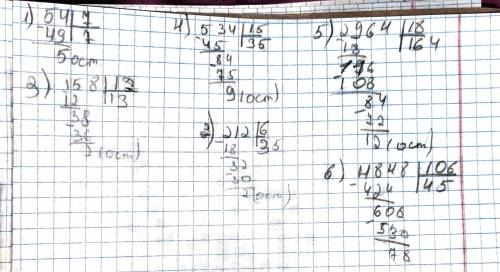 1) 54 | 7
- 49 | 7
5 ост
3) 158 | 12
12 | 13
- 38
36
2 (ост)
4) 534 | 15
- 45 | 35
- 84
75
9 (ост)
2) - 212 | 6
18 | 35
- 32
30
2 (ост)
5) - 2964 | 18
18 | 164
- 116
108
- 84
72
12 (ост)
6) - 4848 | 106
424 | 45
- 608
530
78